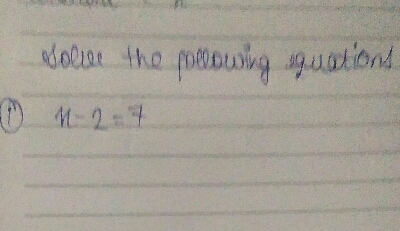 Solve the following equations
① x - 2 = 7